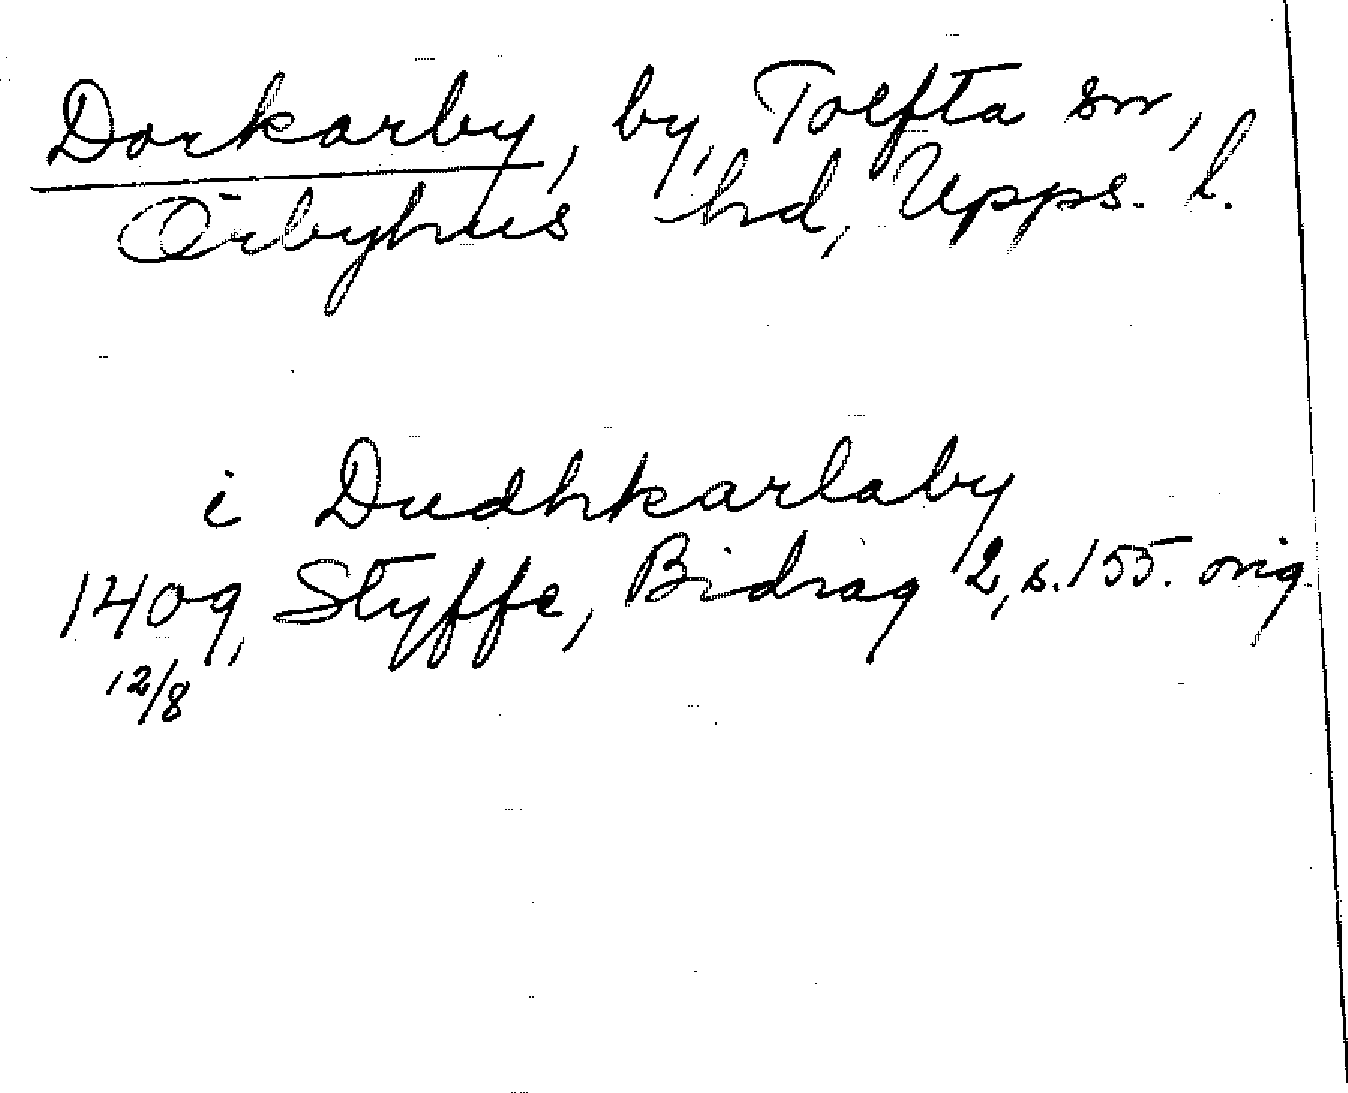 Dorkarby, by, Tolfta sn,
Örbyhus hd, Upps. l.
i Dudhkarlaby
1409, Styffe, Bidrag 2, s. 155. orig.
12/8